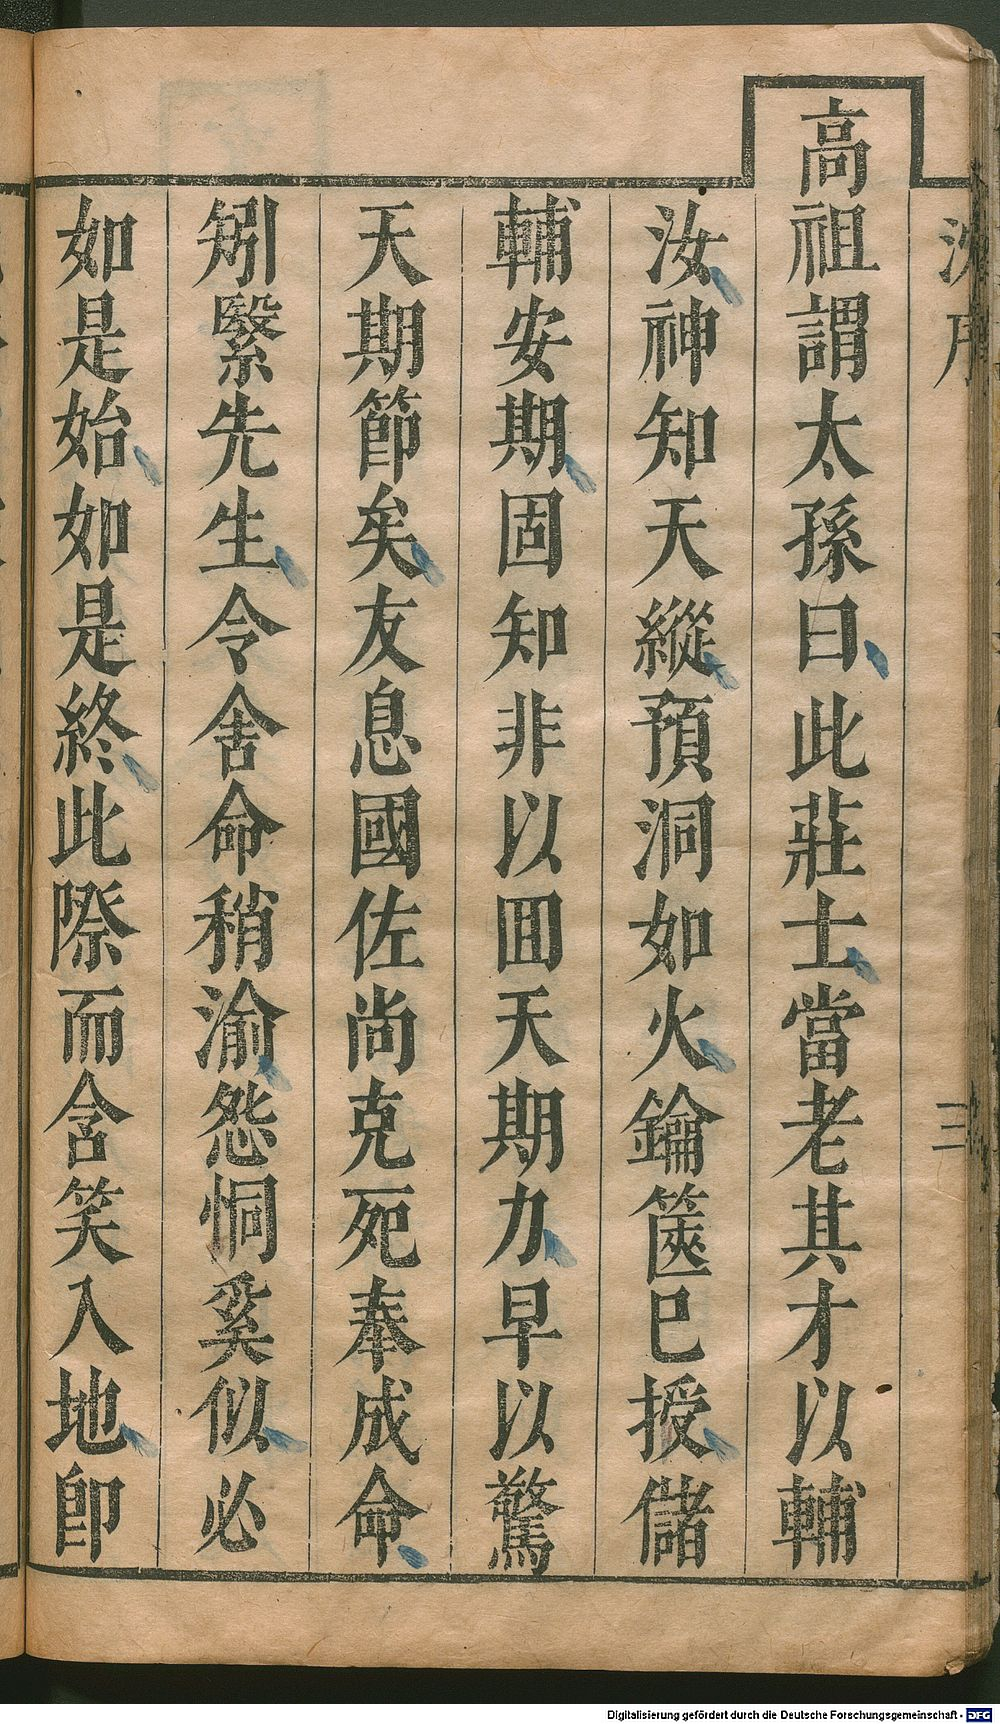 沈序 三
高祖謂太孫曰此莊士當老其才以輔
汝神知天縱預洞如火鑰篋已授儲
輔安期固知非以囬天期力早以驚
天期節矣友息國佐尚克死奉成命
矧繄先生令舍命稍渝怨恫奚似必
如是始如是終此際而含笑入地卽
Digitalisierung gefördert durch die Deutsche Forschungsgemeinschaft - DFG